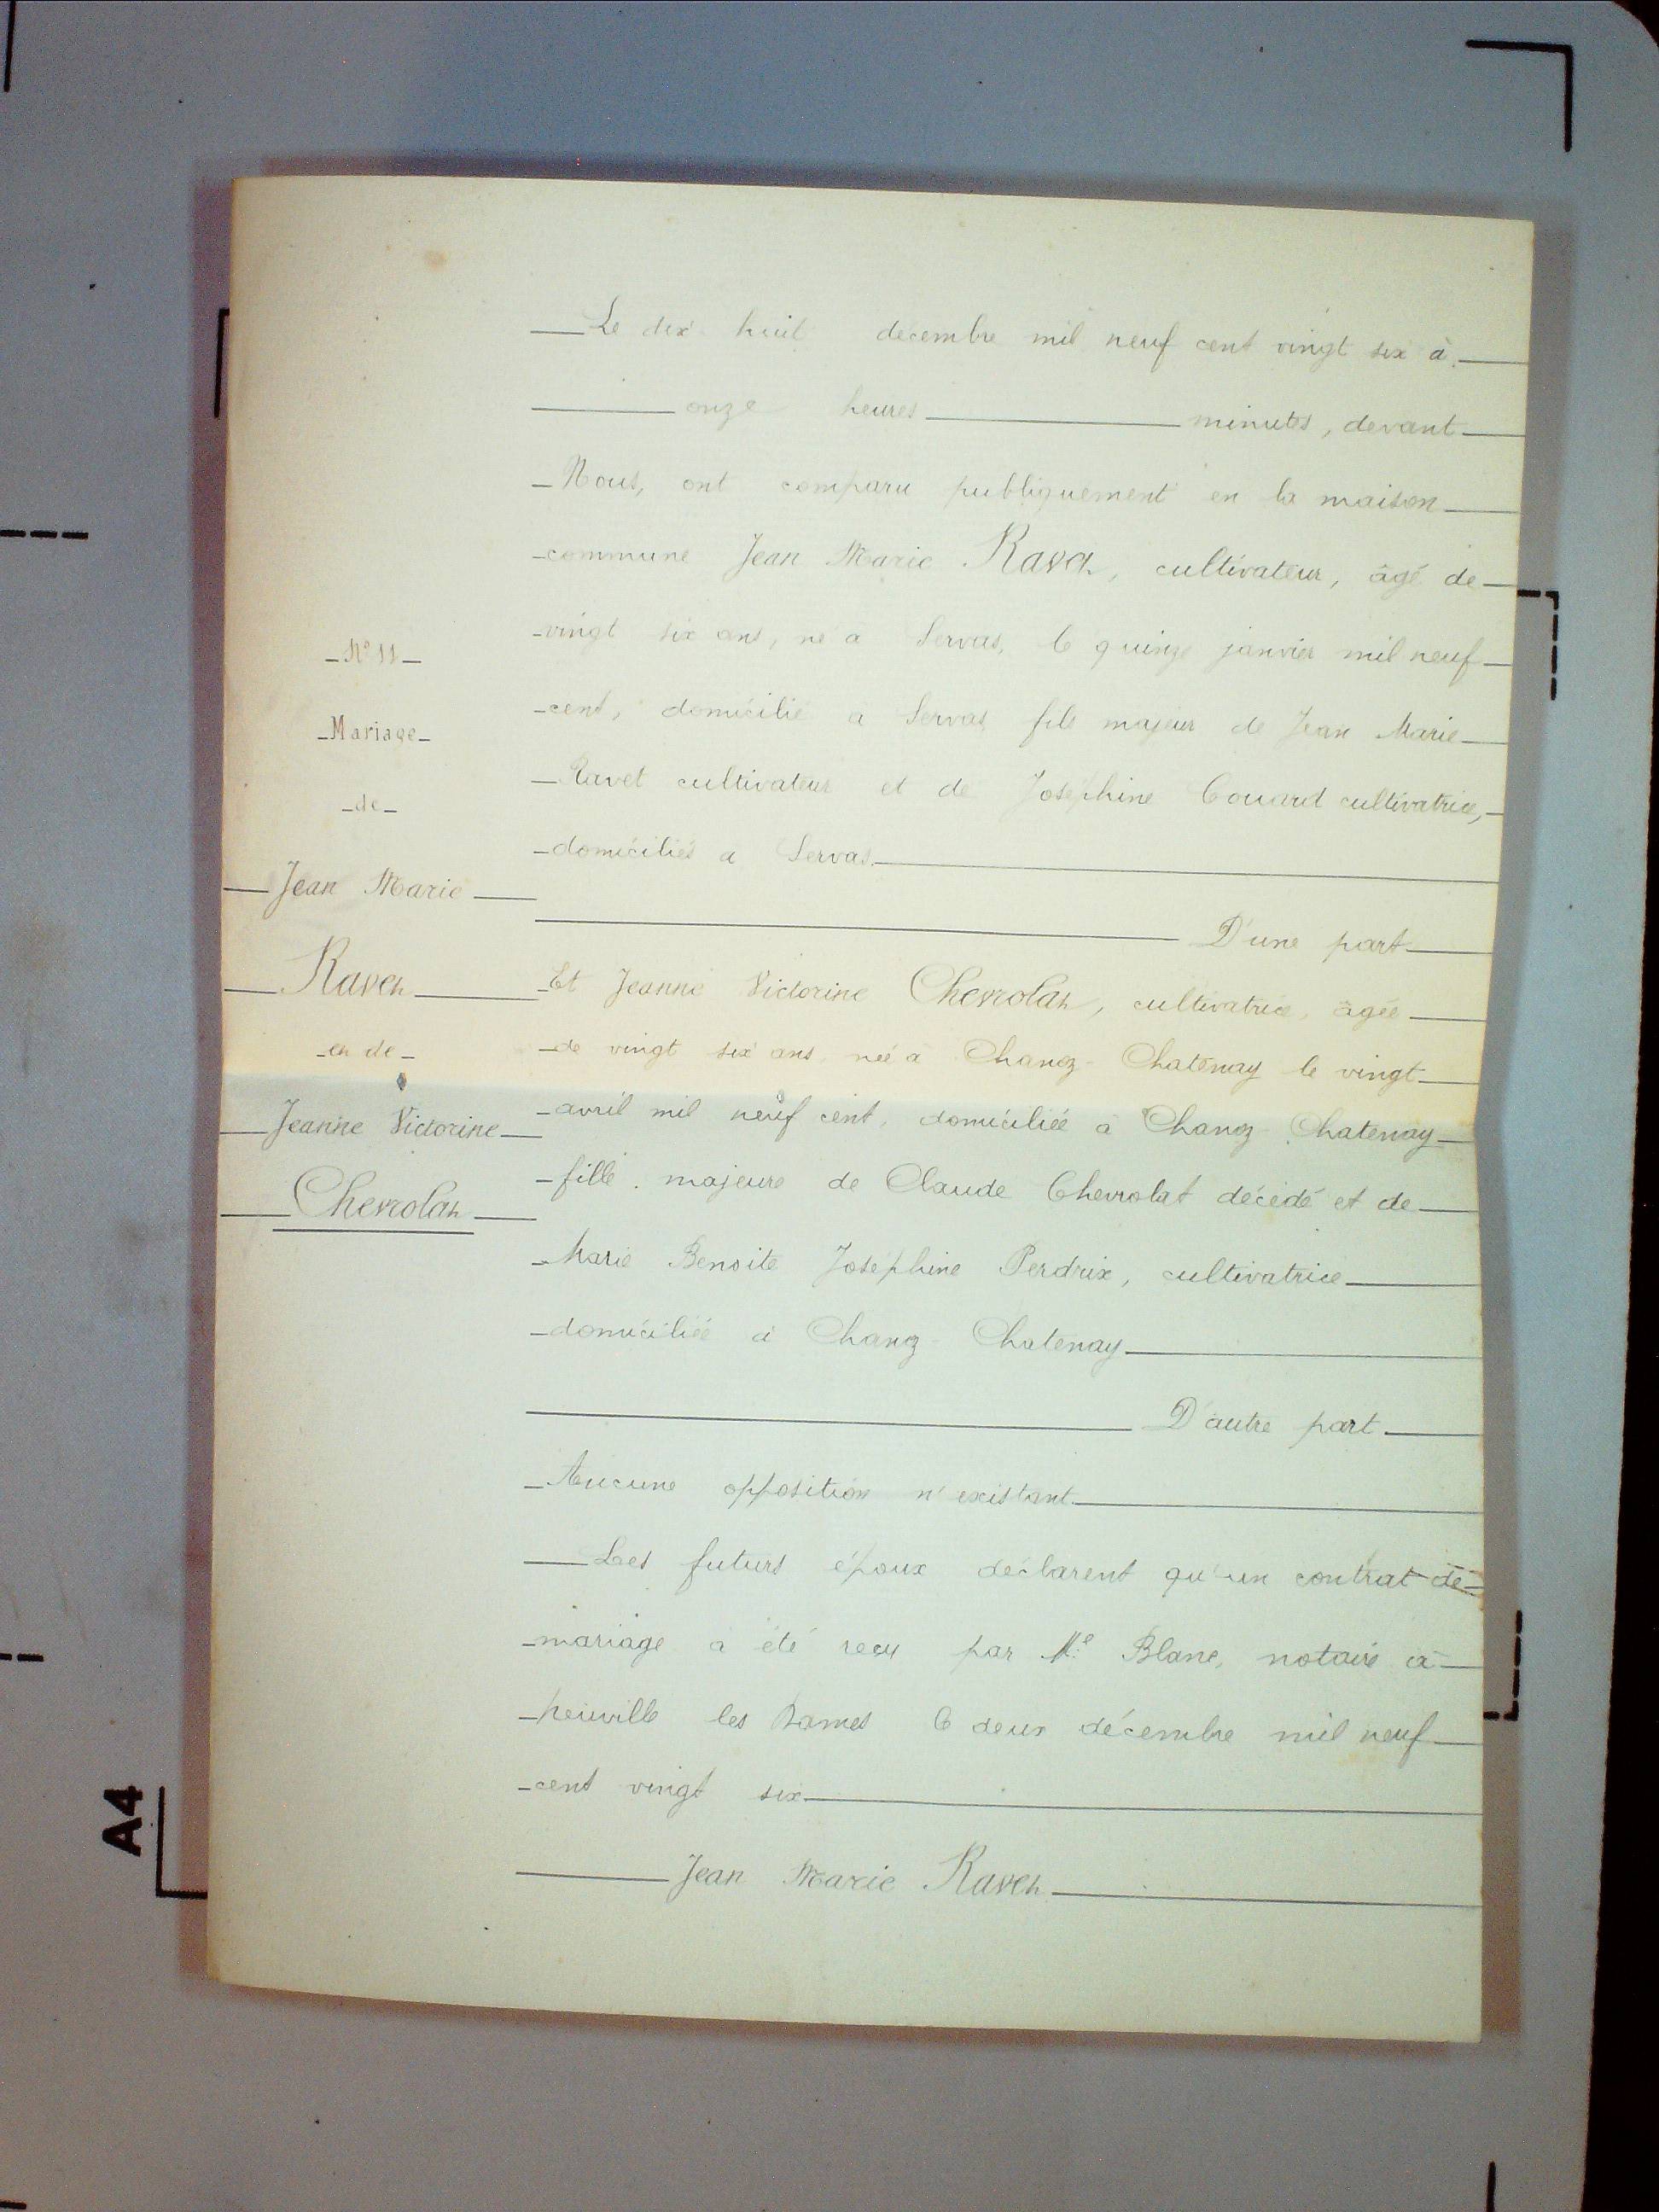 Le dix huit decembre mil neuf cent vingt six à
onze heures minutes, devant
Nous, ont comparu publiquement en la maison
commune Jean Marie Ravet, cultivateur, âgé de
vingt six ans, né a Servas, le quinze janvier mil neuf
cent, domicilié a Servas fils majeur de Jean Marie
Ravet cultivateur et de Joséphine Couard cultivatrice,
domiciliés a Servas.
D'une part
Et Jeanne Victorine Chevrolat, cultivatrice, âgée
de vingt six ans, née à Chanoz-Chatenay le vingt
avril mil neuf cent, domiciliée à Chanoz-Chatenay
fille majeure de Claude Chevrolat décédé et de
Marie Benoite Joséphine Perdrix, cultivatrice
domiciliée à Chanoz-Chatenay
D'autre part
Aucune opposition n'existant
Les futurs époux déclarent qu'un contrat de
mariage a été reçu par Me Blanc, notaire à
neuville les Dames le deux décembre mil neuf
cent vingt six
Jean Marie Ravet
No 11
Mariage
de
Jean Marie
Ravet
et de
Jeanne Victorine
Chevrolat
A4